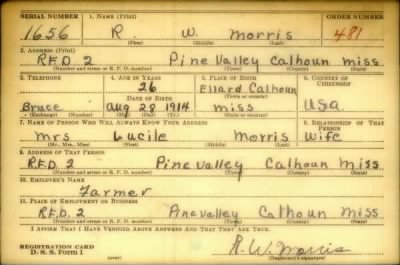 SERIAL NUMBER 1. NAME (Print) ORDER NUMBER
1656 R. W. Morris 481
(First) (Middle) (Last)
2. ADDRESS (Print)
R.F.D. 2 Pine Valley Calhoun Miss
(Number and street or R. F. D. number) (Town) (County) (State)
3. TELEPHONE 4. AGE IN YEARS 5. PLACE OF BIRTH 6. COUNTRY OF CITIZENSHIP
26 Ellard Calhoun
DATE OF BIRTH (Town or county)
Bruce Aug 28 1914 Miss USA
(Exchange) (No.) (Mo.) (Day) (Yr.) (State or country)
7. NAME OF PERSON WHO WILL ALWAYS KNOW YOUR ADDRESS 8. RELATIONSHIP OF THAT PERSON
Mrs Lucile Morris Wife
(Mr., Mrs., Miss) (First) (Middle) (Last)
9. ADDRESS OF THAT PERSON
R.F.D. 2 Pine Valley Calhoun Miss
(Number and street or R. F. D. number) (Town) (County) (State)
10. EMPLOYER'S NAME
Farmer
11. PLACE OF EMPLOYMENT OR BUSINESS
R.F.D. 2 Pine Valley Calhoun Miss
(Number and street or R. F. D. number) (Town) (County) (State)
I AFFIRM THAT I HAVE VERIFIED ABOVE ANSWERS AND THAT THEY ARE TRUE.
REGISTRATION CARD R.W. Morris
D. S. S. Form 1 (over) (Registrant's signature)